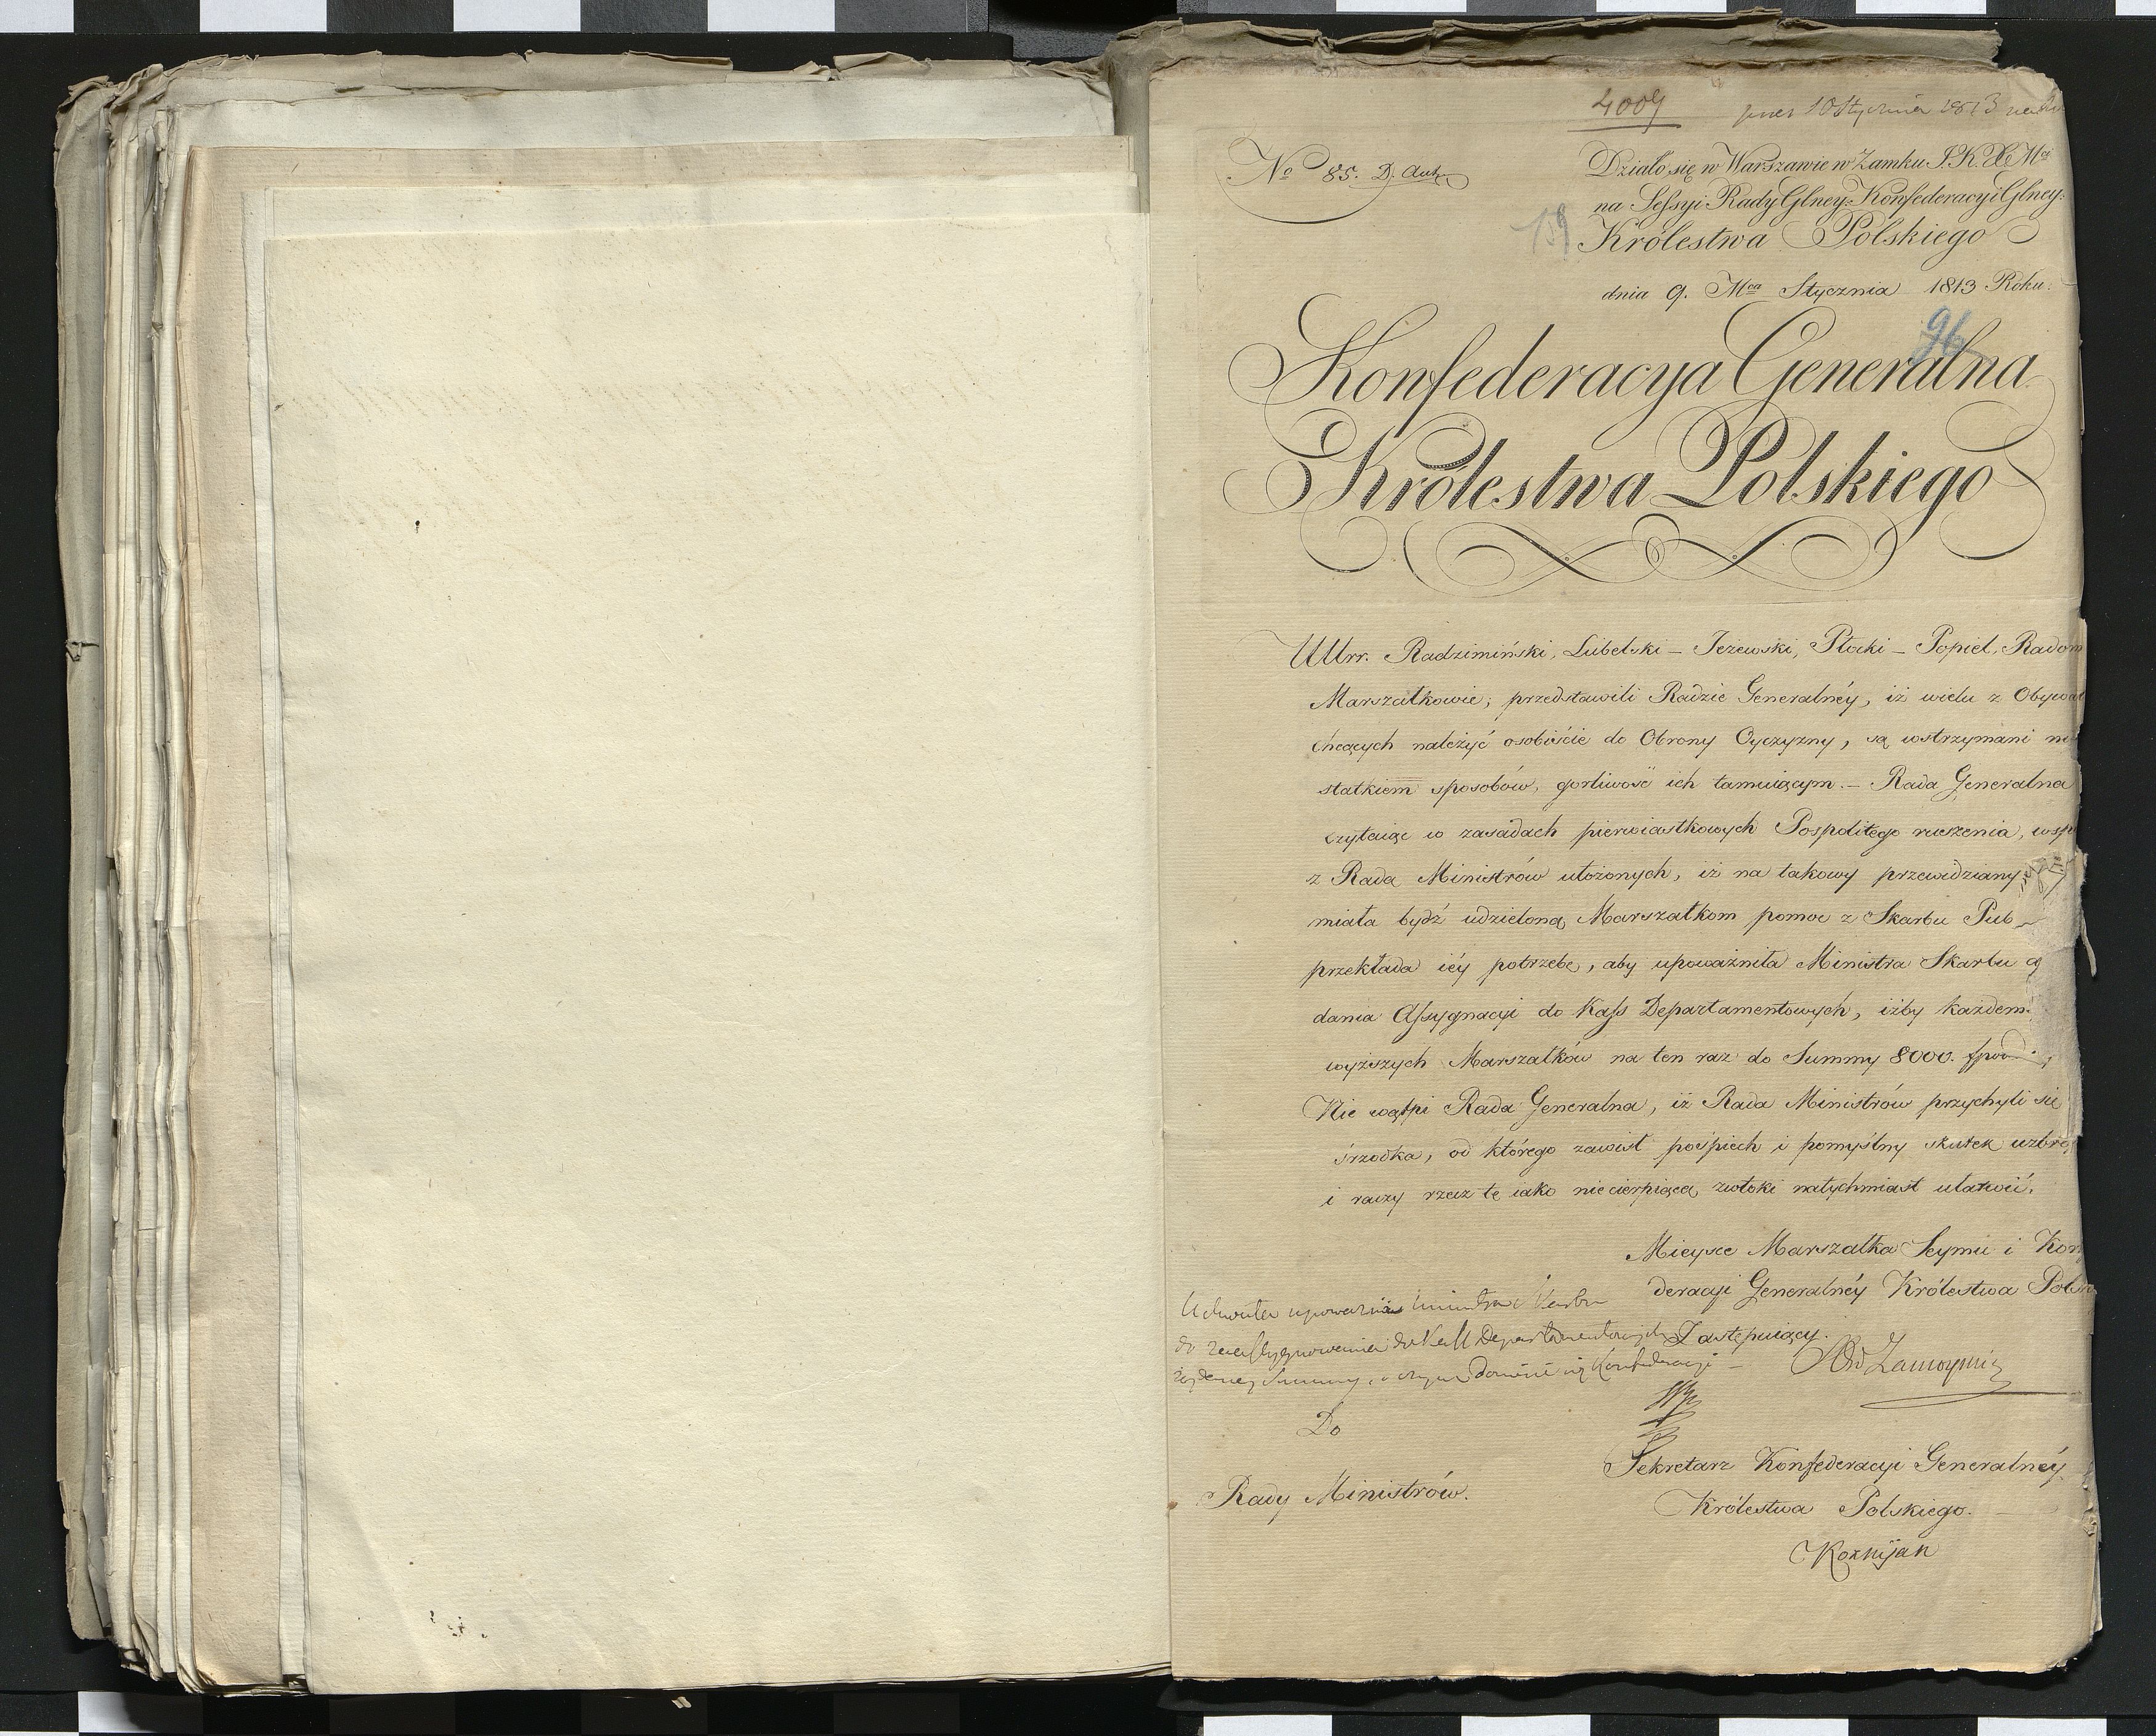 4009
10 Stycznia 1813
No 85. D. Aut.
Działo się w Warszawie w Zamku J. K. X Mci
na Sessyi Rady Glney: Konfederacyi Glney:
159 Królestwa Polskiego
dnia 9. Mca Stycznia 1813 Roku.
96
Konfederacya Generalna
Królestwa Polskiego
UUrr. Radzimiński, Lubelski – Jeżewski, Płocki – Popiel, Radom
Marszałkowie; przedstawili Radzie Generalnéy, iż wielu z Obywat
chcących należyć osobiście do Obrony Oyczyzny, są wstrzymani nie
statkiem sposobów, gorliwość ich tamuiącym. – Rada Generalna
czytaiąc w zasadach pierwiastkowych Pospolitego ruszenia, wsp
z Radą Ministrów ułożonych, iż na takowy przewidziany
miała bydź udzieloną Marszałkom pomoc z Skarbu Pub
przekłada iéy potrzebę, aby upoważniła Ministra Skarbu
dania Assygnacyi do Kass Departamentowych, iżby każdem
wyższych Marszałków na ten raz do Summy 8000.
Nie wątpi Rada Generalna, iż Rada Ministrów przychyli się
śrzodka, od którego zawisł pośpiech i pomyślny skutek uzbro
i raczy rzecz tę iako niecierpiącą zwłoki natychmiast ułatwić.
Mieysce Marszałka Seymu i Kon
deracyi Generalnéy Królestwa Pols
Zastępuiący.
Uchwała upoważnia Ministra Skarbu
do zaassygnowania do Kass Departamentowych
żądaney Summy, o czym donieść Konfederacyi –
Zamoyski
Do
Rady Ministrów.
Sekretarz Konfederacyi Generalnéy
Królestwa Polskiego.
Kozmijan